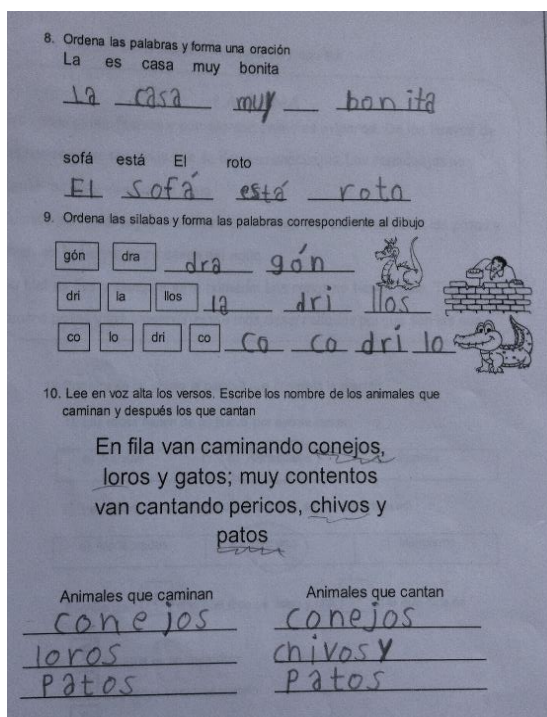 8. Ordena las palabras y forma una oración
La es casa muy bonita
La casa muy bonita
sofá está El roto
El sofá está roto
9. Ordena las silabas y forma las palabras correspondiente al dibujo
gón dra dra gón
dri la llos la dri llos
co lo dri co co co dri lo
10. Lee en voz alta los versos. Escribe los nombre de los animales que
caminan y después los que cantan
En fila van caminando conejos,
loros y gatos; muy contentos
van cantando pericos, chivos y
patos
Animales que caminan Animales que cantan
conejos conejos
loros chivos y
patos patos